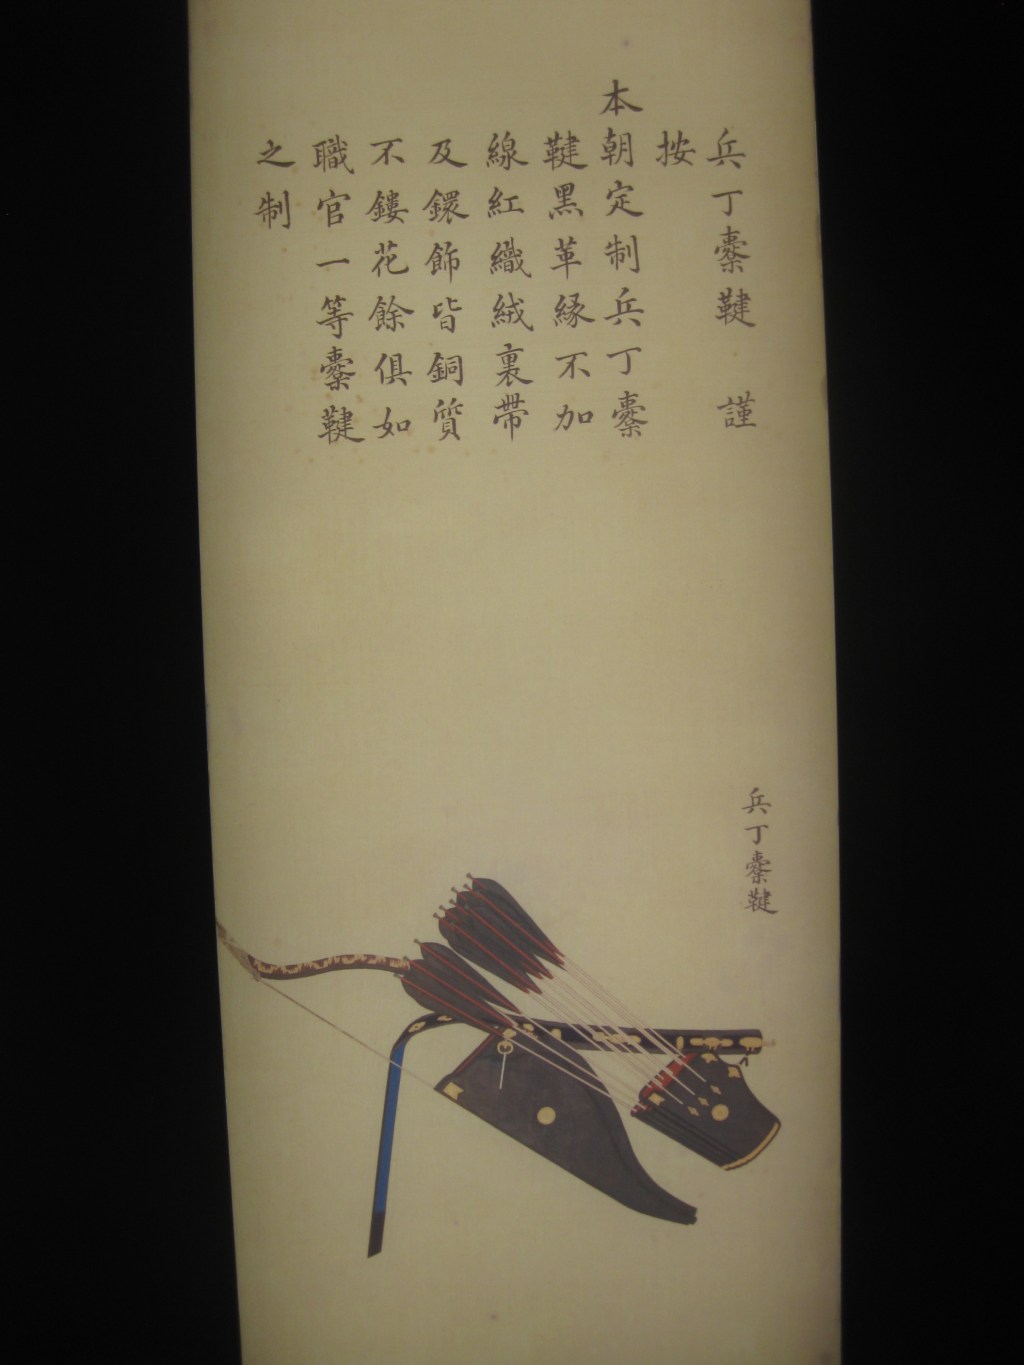 兵丁櫜鞬　謹
按
本朝定制兵丁櫜
鞬黑革緣不加
線紅織絨裏帶
及鐶飾皆銅質
不鏤花餘俱如
職官一等櫜鞬
之制
兵丁櫜鞬